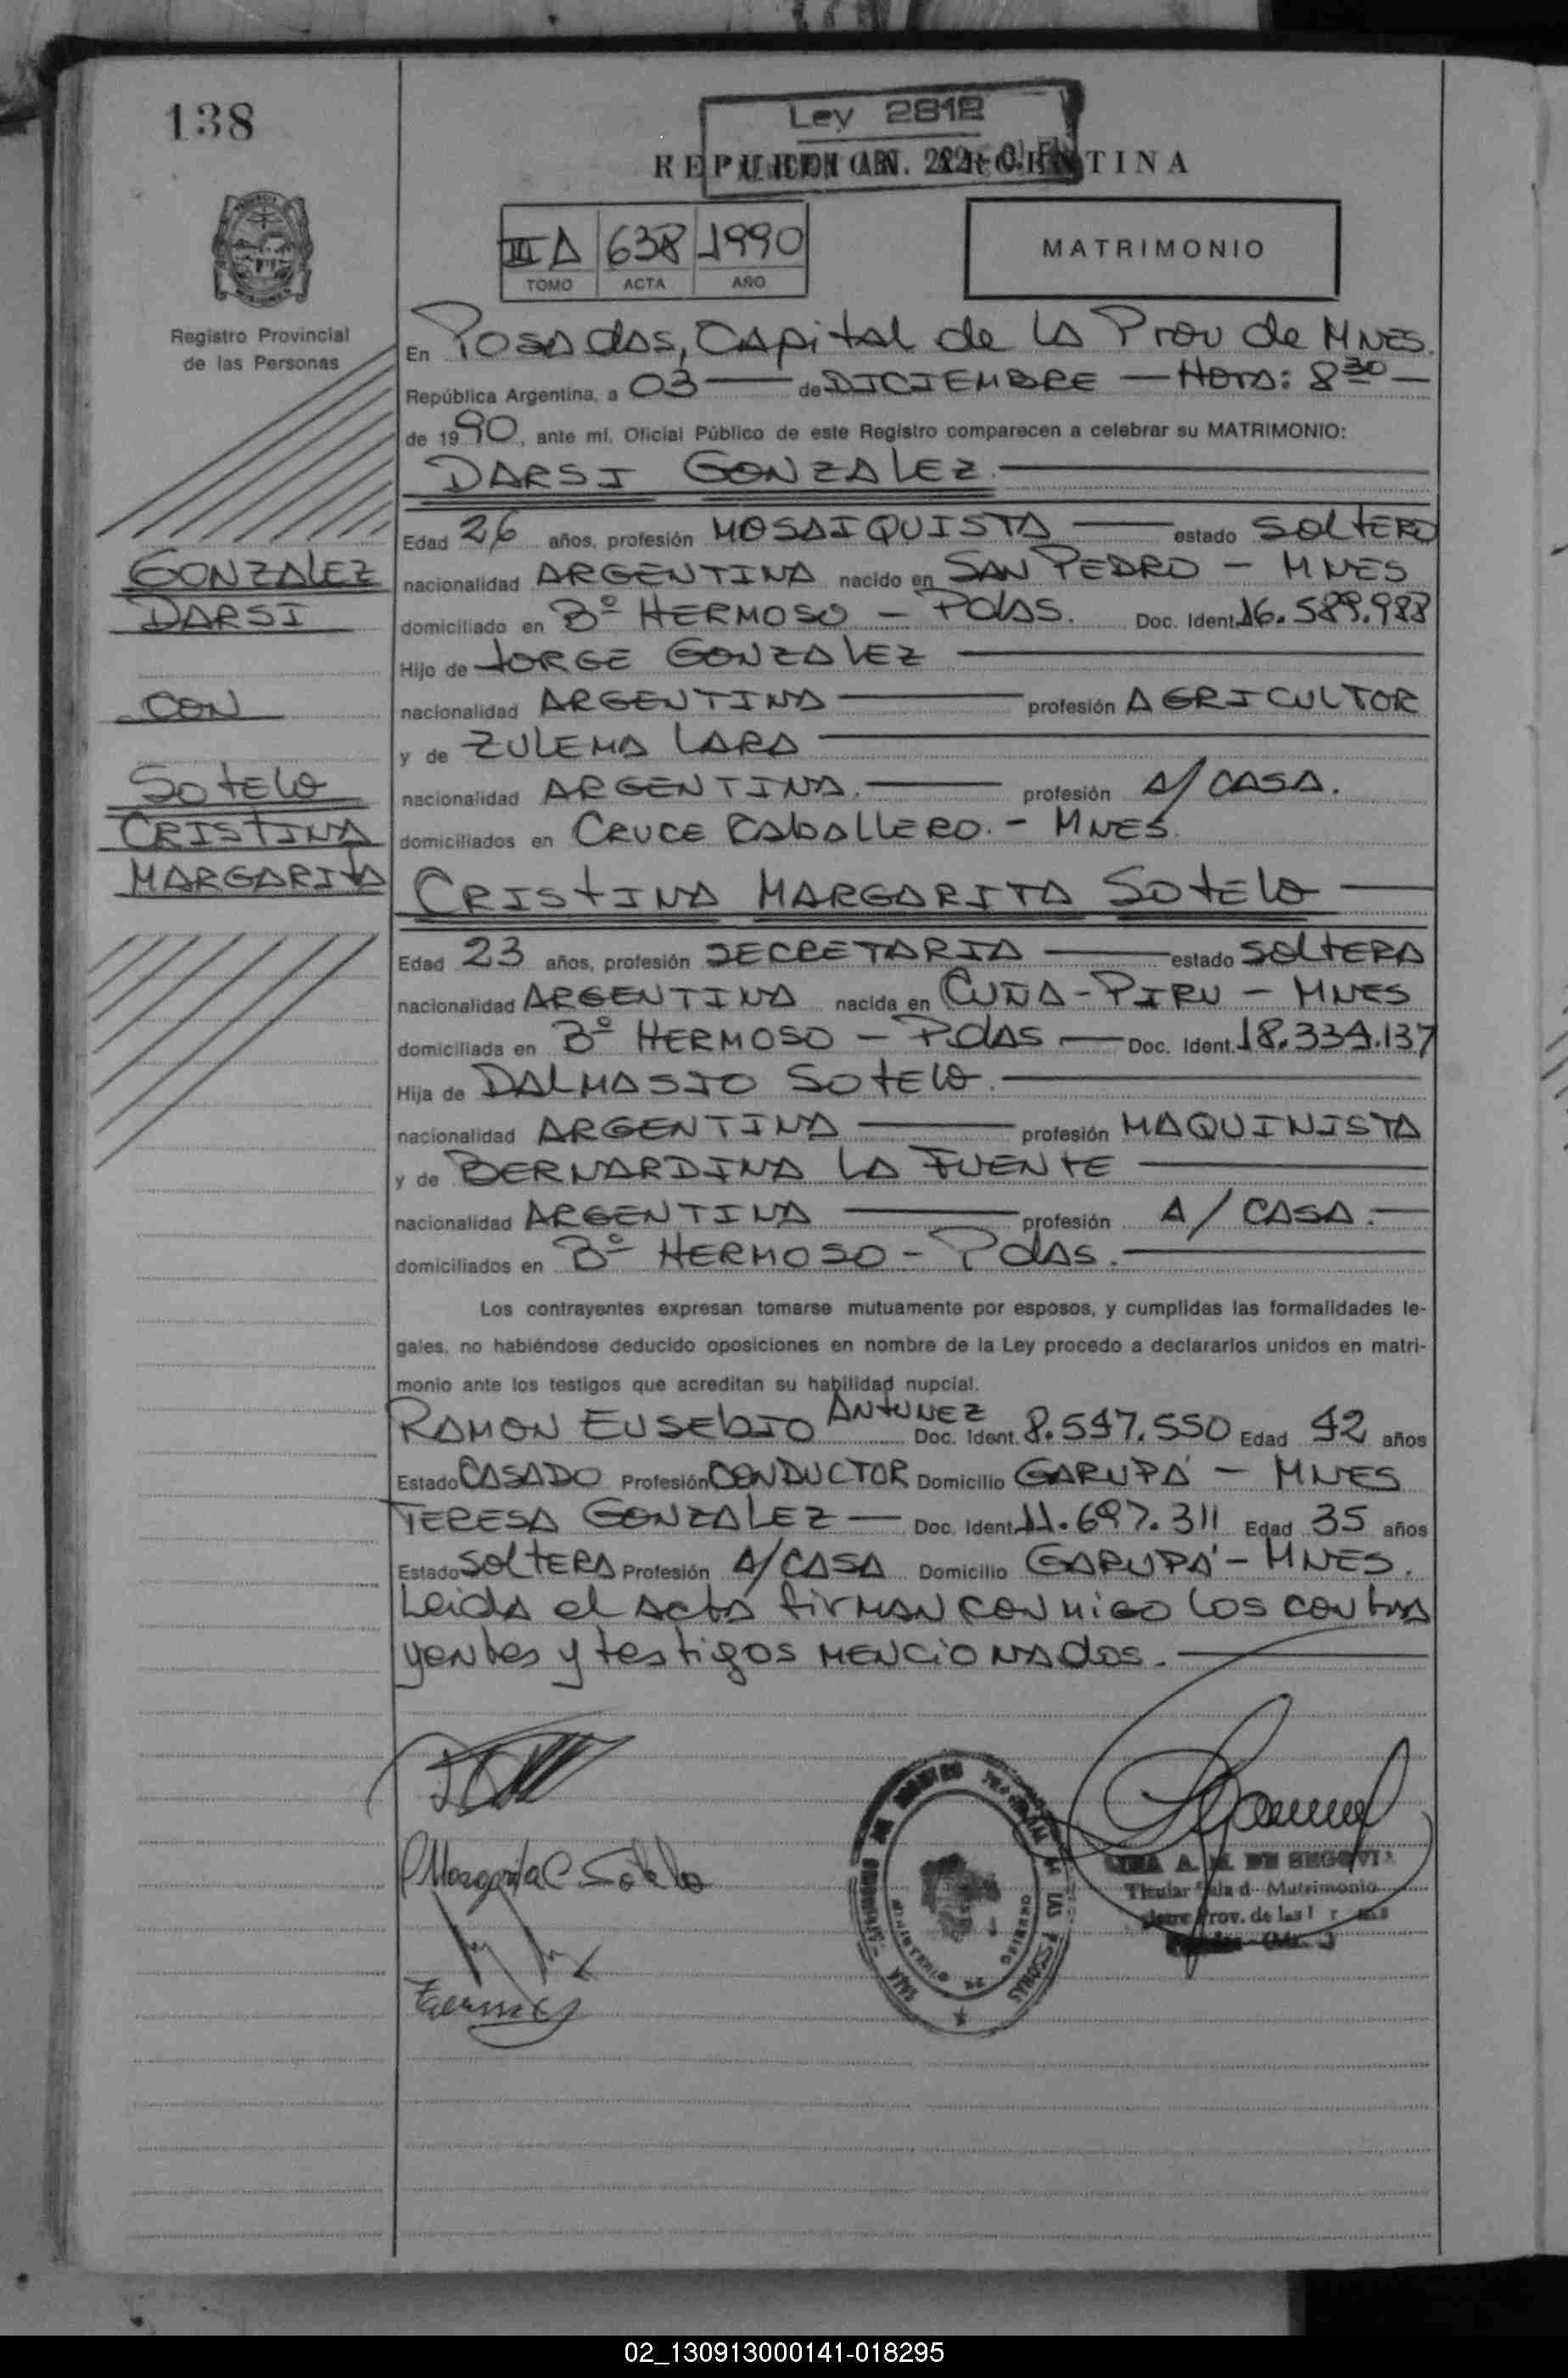 138
Ley 2812
REPUBLICA ARGENTINA
III A 638 1990
TOMO ACTA AÑO
MATRIMONIO
Registro Provincial
de las Personas
En Posadas, Capital de la Prov de Mnes.
República Argentina, a 03 de DICIEMBRE — Hora: 8 30 —
de 1990, ante mí, Oficial Público de este Registro comparecen a celebrar su MATRIMONIO:
DARSI GONZALEZ
Edad 26 años, profesión MOSAIQUISTA estado SOLTERO
GONZALEZ
DARSI
CON
SOTELO
CRISTINA
MARGARITA
nacionalidad ARGENTINA nacido en SAN PEDRO - MNES
domiciliado en Bº HERMOSO - PDAS. Doc. Ident. 16.589.988
Hijo de JORGE GONZALEZ
nacionalidad ARGENTINA profesión AGRICULTOR
y de ZULEMA LARA
nacionalidad ARGENTINA. profesión A/ CASA.
domiciliados en CRUCE CABALLERO. - MNES.
CRISTINA MARGARITA SOTELO
Edad 23 años, profesión SECRETARIA estado SOLTERA
nacionalidad ARGENTINA nacida en CUÑA-PIRU - MNES
domiciliada en Bº HERMOSO - PDAS Doc. Ident. 18.339.137
Hija de DALMASIO SOTELO.
nacionalidad ARGENTINA profesión MAQUINISTA
y de BERNARDINA LA FUENTE
nacionalidad ARGENTINA profesión A/ CASA.
domiciliados en Bº HERMOSO - Pdas.
Los contrayentes expresan tomarse mutuamente por esposos, y cumplidas las formalidades le-
gales, no habiéndose deducido oposiciones en nombre de la Ley procedo a declararlos unidos en matri-
monio ante los testigos que acreditan su habilidad nupcial.
RAMON EUSEBIO ANTUNEZ Doc. Ident. 8.547.550 Edad 42 años
Estado CASADO Profesión CONDUCTOR Domicilio GARUPÁ - MNES
TERESA GONZALEZ — Doc. Ident. 11.697.311 Edad 35 años
Estado SOLTERA Profesión A/CASA Domicilio GARUPÁ - MNES.
Leida el acta firman conmigo los contra
yentes y testigos mencionados.
Margarita C Sotelo
A. M. DE SEGOVIA
Titular Sala d Matrimonio
Prov. de las
02_130913000141-018295